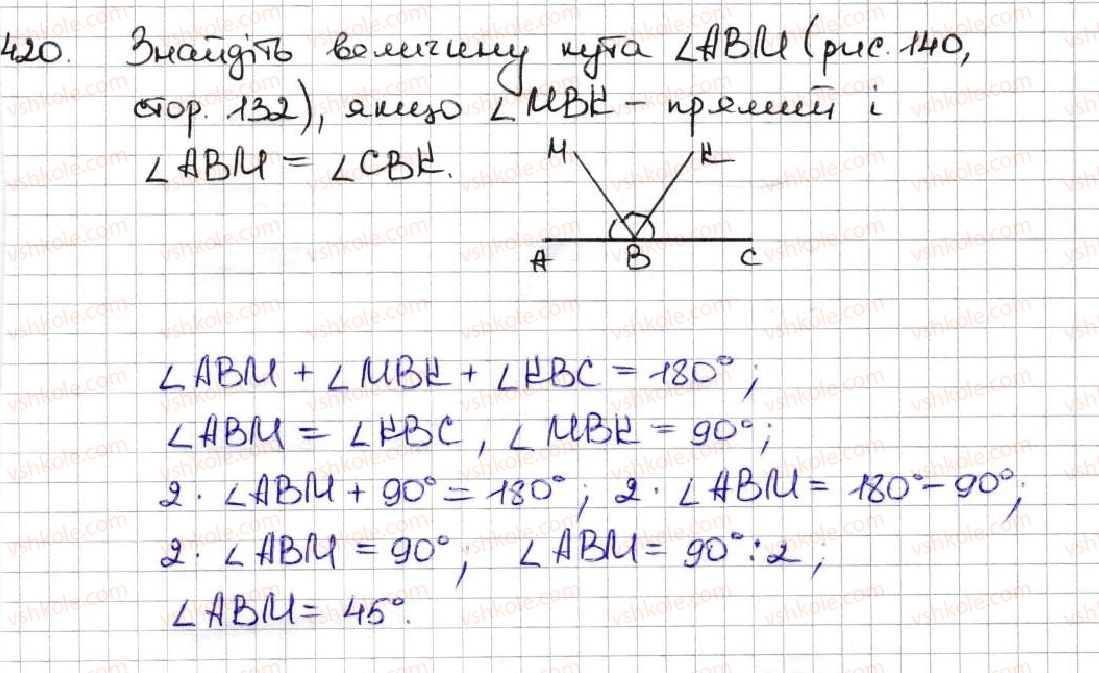 420. Знайдіть величину кута ∠ABM (рис. 140,
стор. 132), якщо ∠MBK – прямий і
∠ABM = ∠CBK.
M K
A B C
∠ABM + ∠MBK + ∠KBC = 180°;
∠ABM = ∠KBC, ∠MBK = 90°;
2 · ∠ABM + 90° = 180°; 2 · ∠ABM = 180° – 90°;
2 · ∠ABM = 90°; ∠ABM = 90° : 2;
∠ABM = 45°.